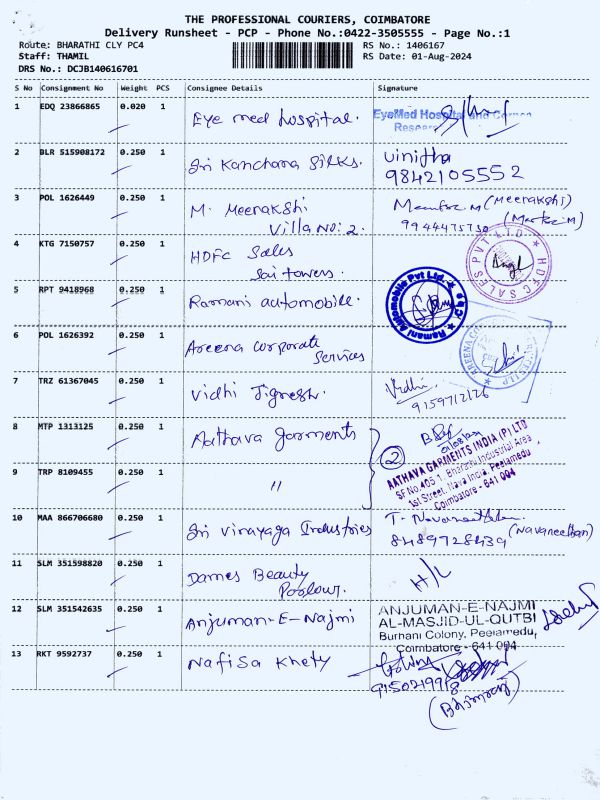 THE PROFESSIONAL COURIERS, COIMBATORE
Delivery Runsheet - PCP - Phone No.:0422-3505555 - Page No.:1
Route: BHARATHI CLY PC4 RS No.: 1406167
Staff: THAMIL RS Date: 01-Aug-2024
DRS No.: DCJB140616701
S No Consignment No Weight PCS Consignee Details Signature
1 EDQ 23866865 0.020 1 Eye med hospital. EyeMed Hospital and
Resear
2 BLR 515908172 0.250 1 Sri Kanchana Silks. Vinitha
9842105552
3 POL 1626449 0.250 1 M. Meenakshi M (Meenakshi)
Villa No: 2. 9944475730
4 KTG 7150757 0.250 1 HDFC Sales HDFC SALES PVT LTD
Sai towers.
5 RPT 9418968 0.250 1 Ramani automobile. Ramani Automobile Pvt Ltd.
6 POL 1626392 0.250 1 Areena corporate
Services
7 TRZ 61367045 0.250 1 Vidhi Jignesh. Vidhi
9159712126
8 MTP 1313125 0.250 1 Aathava garments
2 AATHAVA GARMENTS INDIA (P) LTD
SF No 405 1, Bharathi Industrial Area
1st Street, Nava India, Peelamedu
Coimbatore - 641 004
9 TRP 8109455 0.250 1 "
10 MAA 866706680 0.250 1 Sri Vinayaga Industries T. (Navaneethan)
8489728439
11 SLM 351598820 0.250 1 Dames Beauty H/L
Parlour.
12 SLM 351542635 0.250 1 Anjuman-E-Najmi ANJUMAN-E-NAJMI
AL-MASJID-UL-QUTBI
Burhani Colony, Peelamedu,
Coimbatore - 641 004
13 RKT 9592737 0.250 1 Nafisa Khety
9150219918